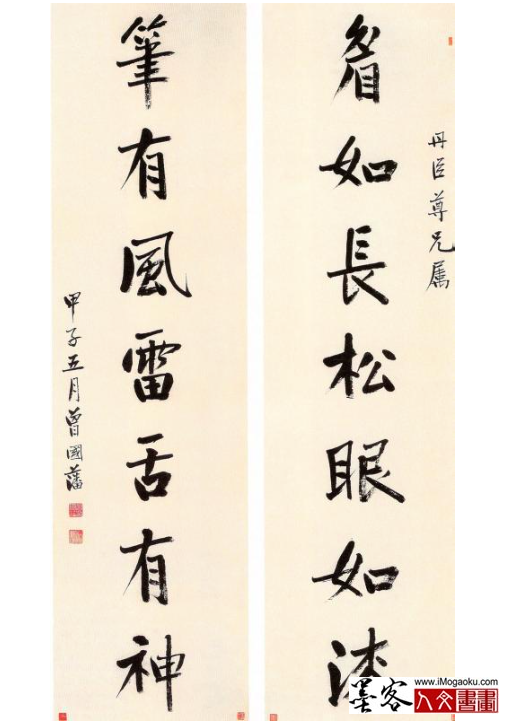 丹臣尊兄屬
睂如長松眼如漆
筆有風雷舌有神
甲子五月曾國藩
墨客
www.iMogaoku.com
人文書畫